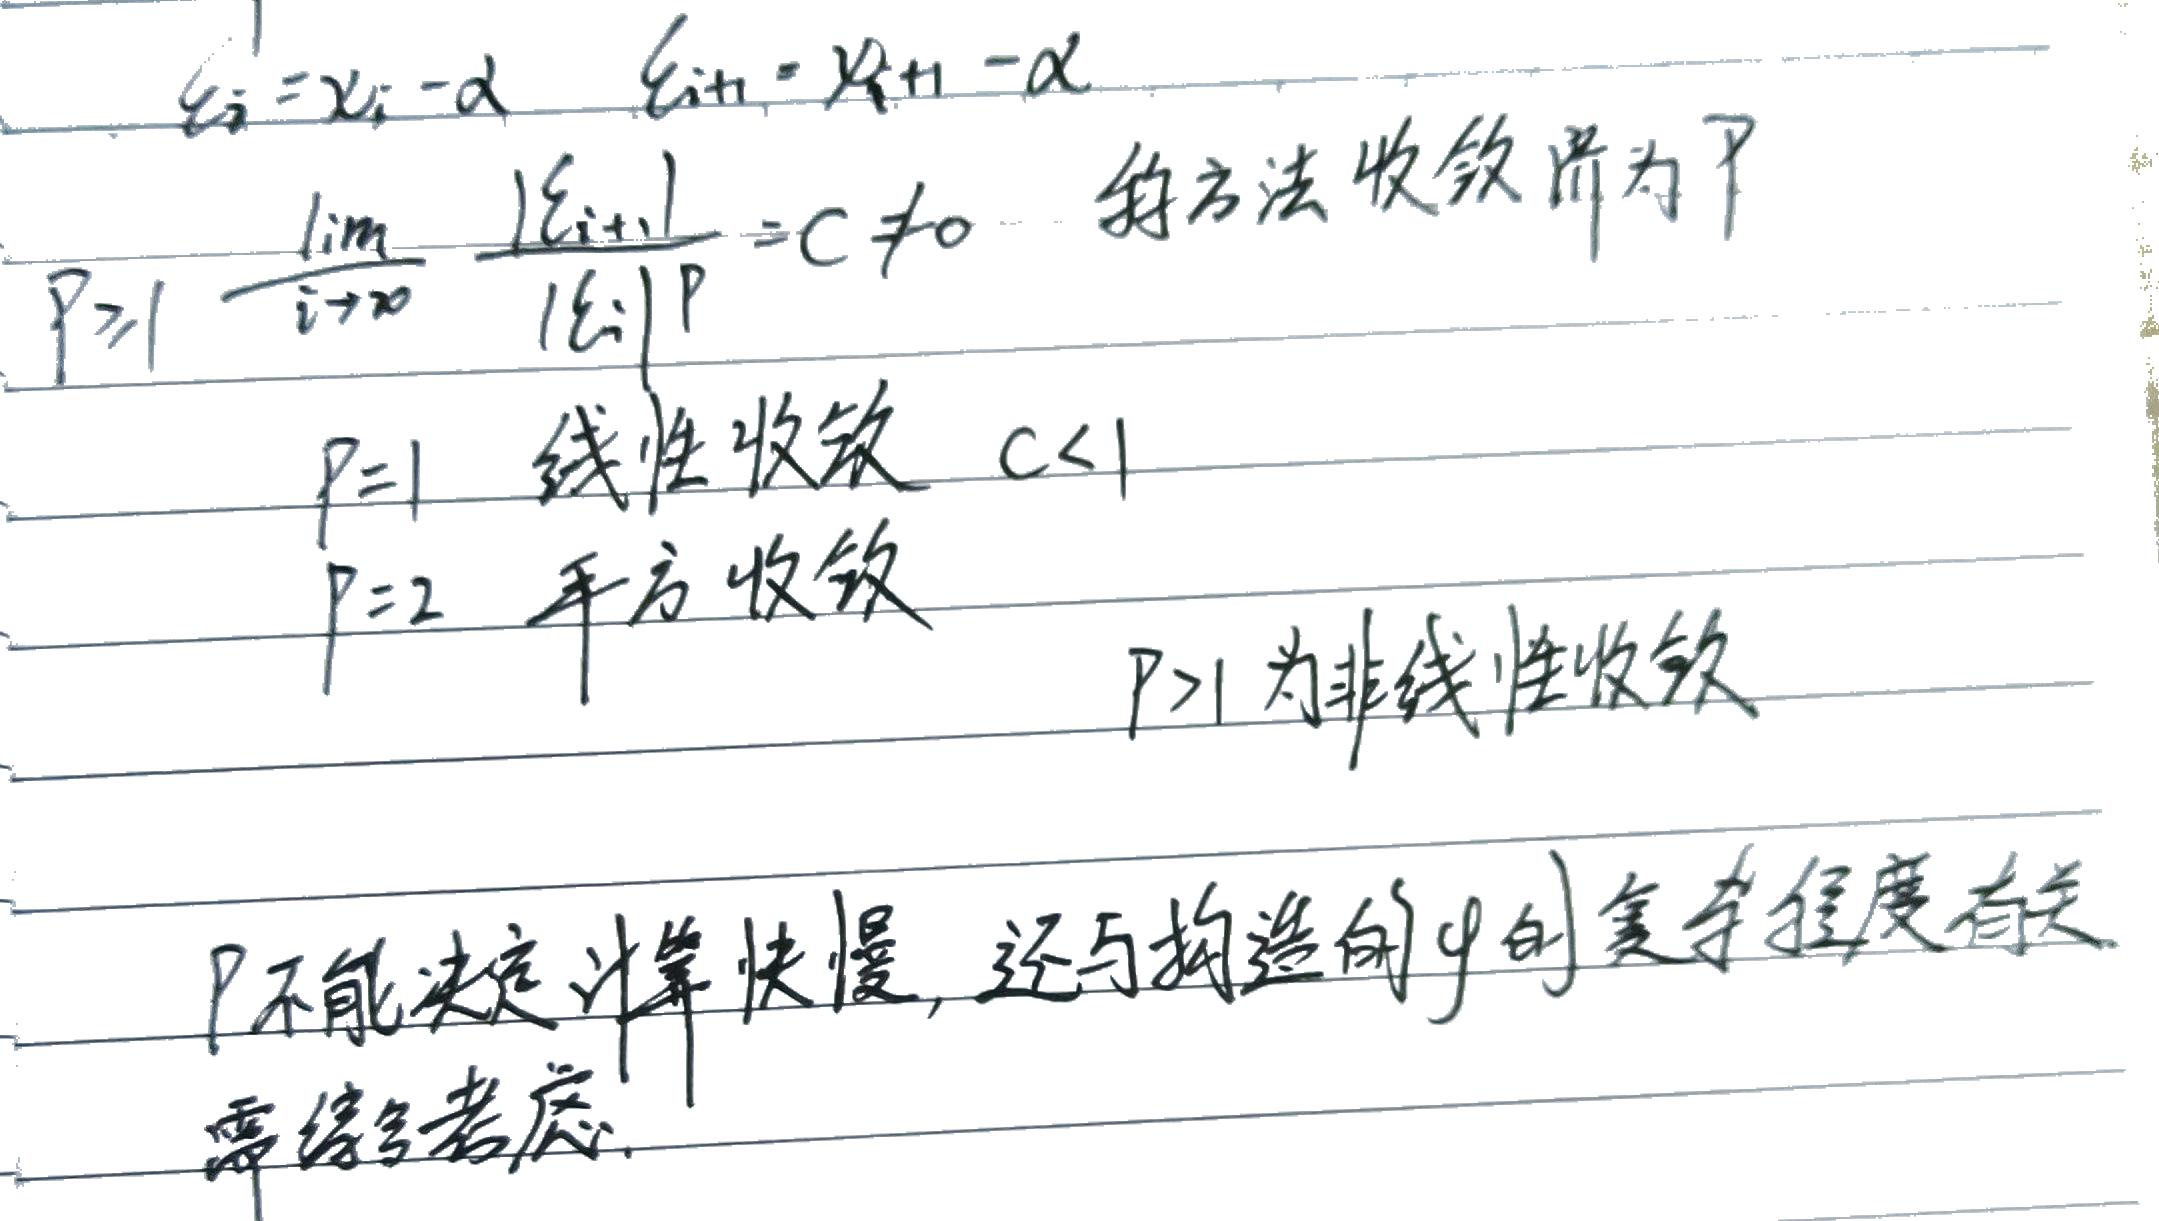 ε_i = x_i - α  ε_{i+1} = x_{i+1} - α
P≥1 lim_{i→∞} |ε_{i+1}| / |ε_i|^P = C ≠ 0 称方法收敛阶为P
P=1 线性收敛 C<1
P=2 平方收敛
P>1 为非线性收敛
P不能决定计算快慢, 还与构造的φ的复杂程度有关.
需综合考虑.